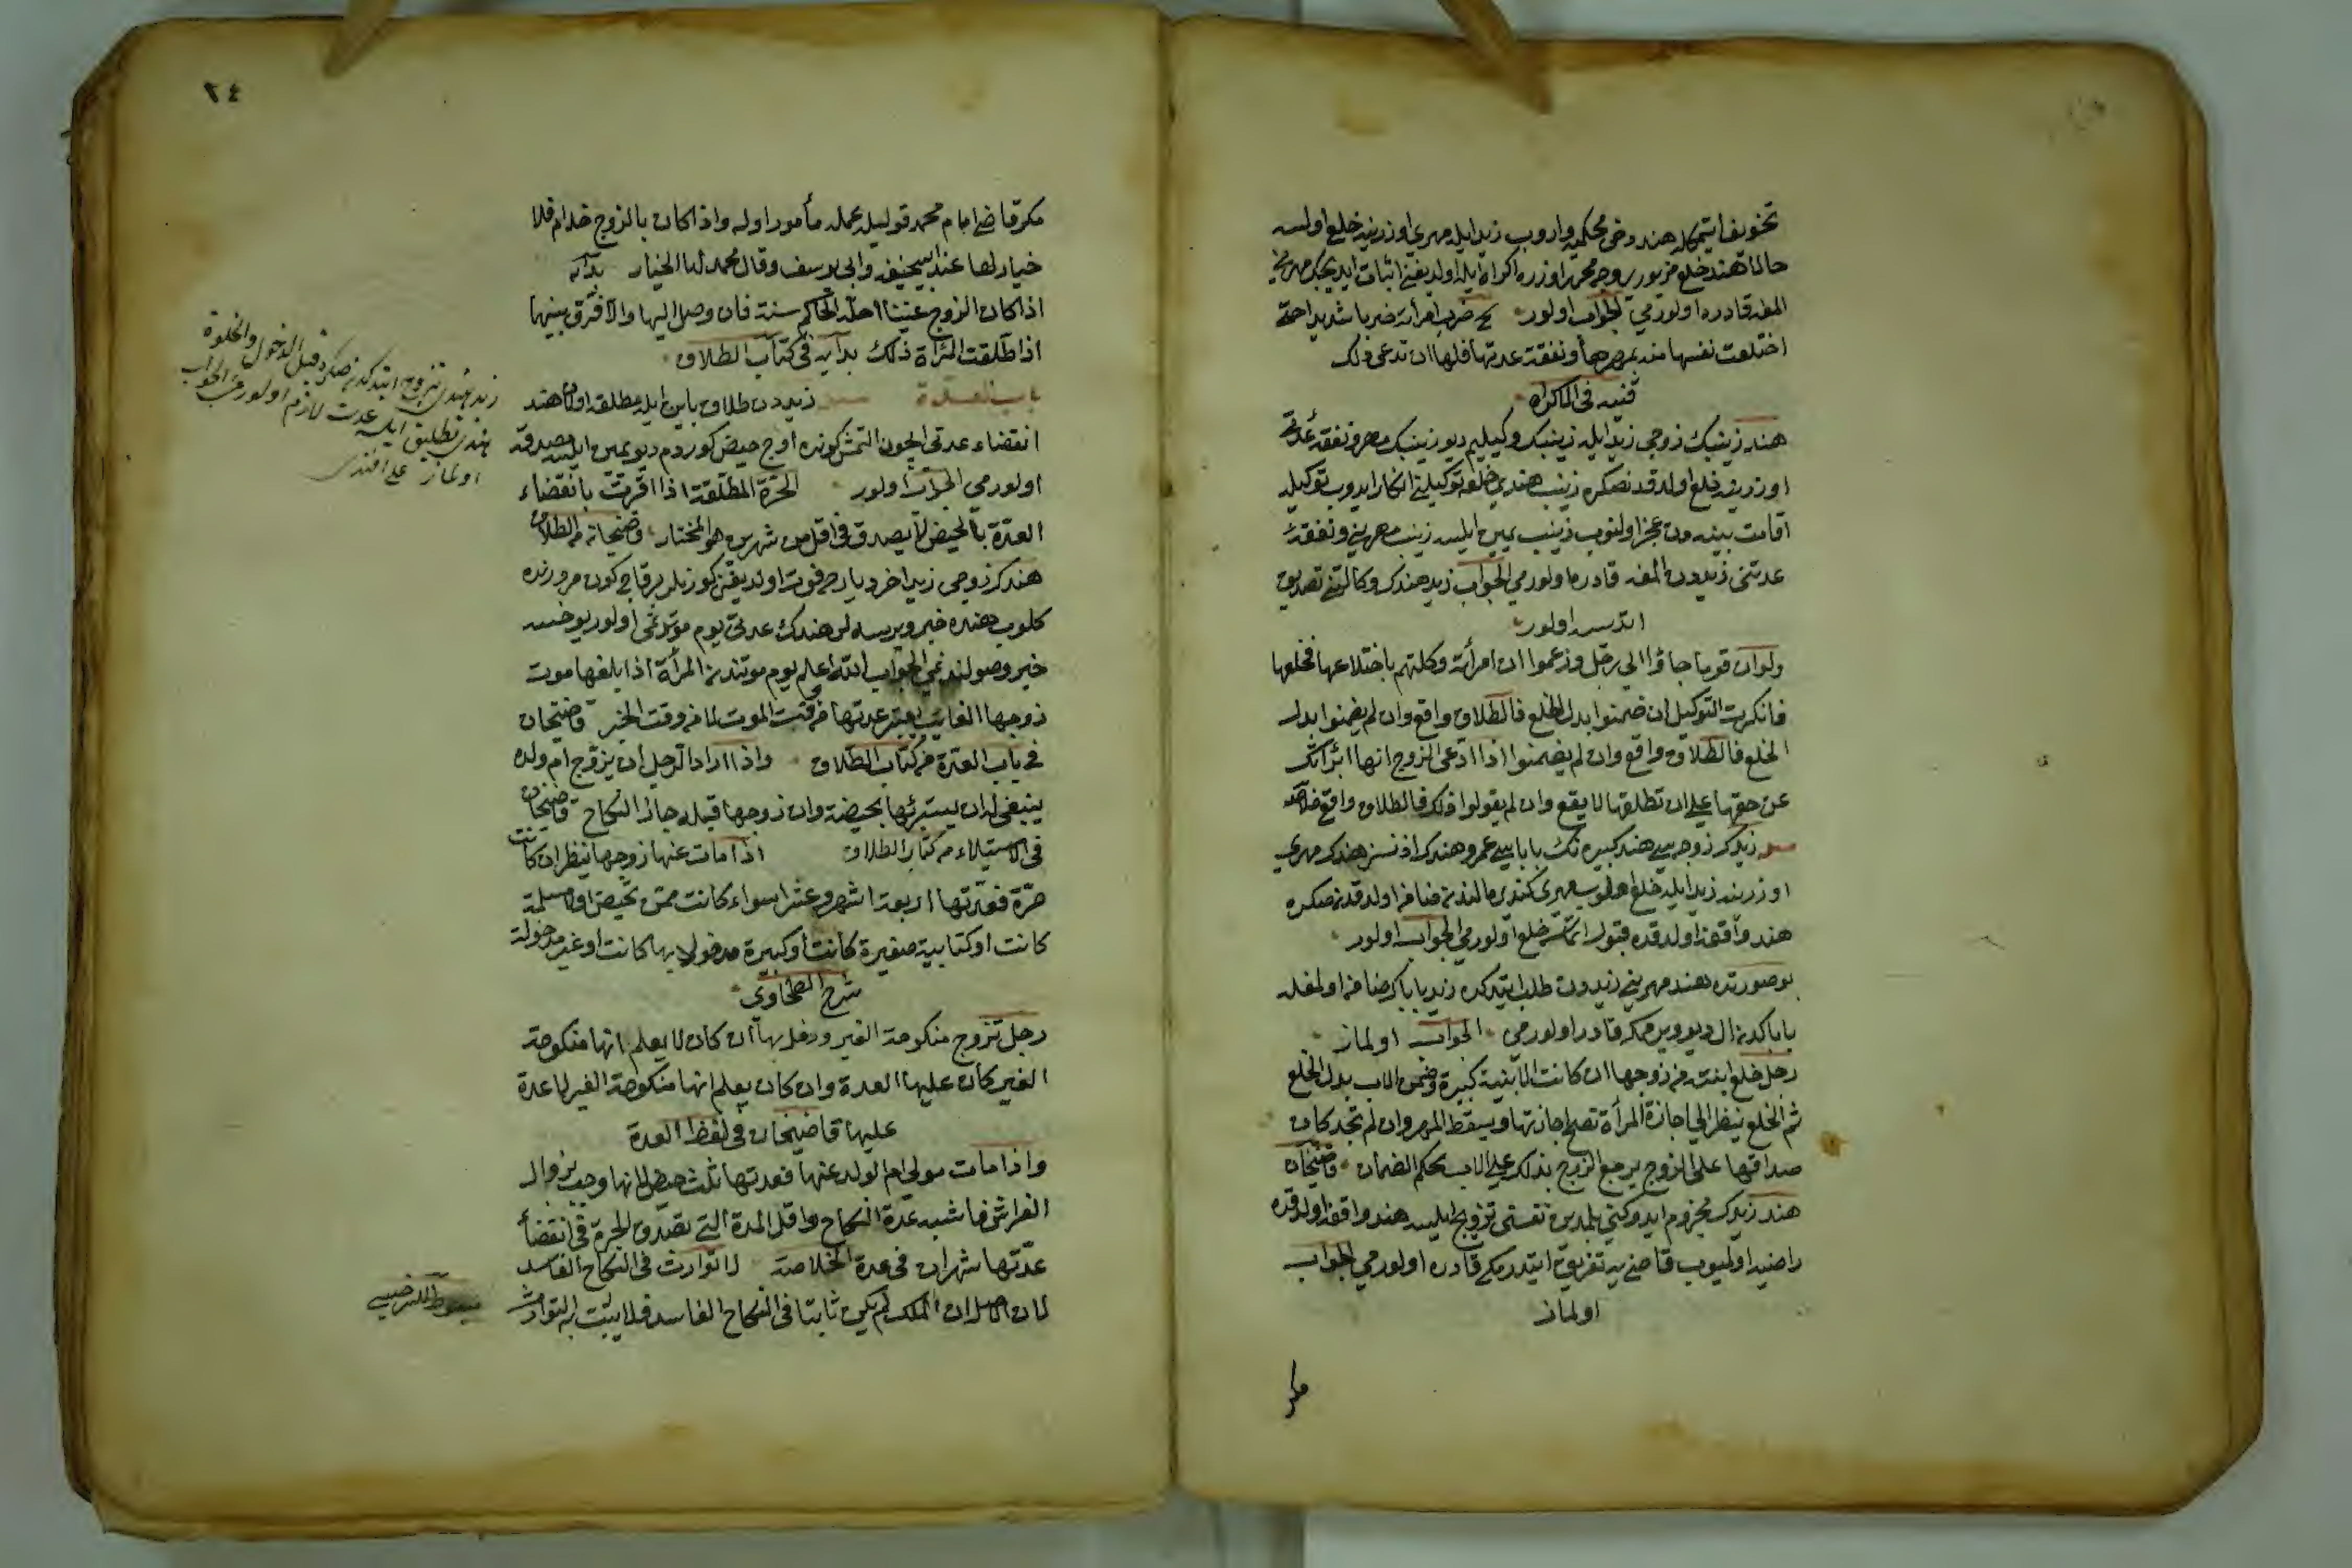 تخويف اتيمكله هند دخی محكميه واروب زيد ايله مهری اوزرينه خلع اولسه
حالا هند خلع مزبور بر وجه محرر اوزره اكراه ايله اولديغنی اثبات ايديجك مهرينی
المغه قادره اولورمی الجواب اولور ضرب امرأته ضربا شديدا حتى
اختلعت نفسها منه بمهرها و نفقة عدتها فلها ان تدعى ذلك
قنيه فی الاكراه
هند زينبك زوجی زيد ايله زينبك وكيليم ديو زينبك مهر و نفقه عدتی
اوزرينه خلع اولدقدنصكره زينب هندی خلعه توكيلنی انكار ايدوب توكيله
اقامت بينه دن عجز اولنوب زينب يمين ايلسه زينب مهرينی و نفقه
عدتنی زيددن المغه قادره اولورمی الجواب زيد هندك وكالتنی تصديق
اتدیسه اولور
ولو ان قوما جاؤا الى رجل وزعموا ان امرأته وكلتهم باختلاعها فخلعها
فانكرت التوكيل ان ضمنوا بدل الخلع فالطلاق واقع وان لم يضمنوا بدل
الخلع فالطلاق واقع وان لم يضمنوا اذا ادعى الزوج انها ابرأتك
عن حقها على ان تطلقها لا يقع وان لم يقولوا ذلك فالطلاق واقع خلاصه
زيدك زوجه سی هند كبيره نك باباسی عمرو هندك اذنسز هندك مهری
اوزرينه زيد ايله خلع اولوب مهری كندی مالندن ضامن اولدقدنصكره
هند واقفه اولدقده قبول اتمسه خلع اولورمی الجواب اولور
بو صورتده هند مهرينی زيددن طلب ايتدكده زيد باباك ضامن اولمغله
باباكدن ال ديو ويرممكه قادر اولورمی الجواب اولماز
رجل خلع ابنته من زوجها ان كانت الابنة كبيرة وضمن الاب بدل الخلع
ثم الخلع ينظر الى اجازة المرأة تصح اجازتها ويسقط المهر وان لم تجز كان
صداقها على الزوج يرجع الزوج بذلك على الاب بحكم الضمان قاضيخان
هند زيدك مجزوم ايدوكنی بلمدين نفسنی تزويج ايلسه هند واقفه اولدقده
راضيه اولميوب قاضی يه تفريق ايتدرمكه قادره اولورمی الجواب
اولماز
مكر
٢٤
مكر قاضی امام محمد قوليله عمله مأمور اوله واذا كان بالزوج جذام فلا
خيار لها عند ابيحنيفه وابى يوسف وقال محمد لها الخيار بدايه
اذا كان الزوج عنينا اجله الحاكم سنة فان وصل اليها والا فرق بينهما
اذا طلقت المرأة ذلك بدايه فى كتاب الطلاق
باب العدة زيددن طلاق باين ايله مطلقه اولان هند
انقضاء عدتی ايچون التمش كونده اوچ حيض كوردم ديو يمين ايلسه مصدقه
اولورمی الجواب اولور الحرة المطلقة اذا اقرت بانقضاء
العدة بالحيض لا يصدق فى اقل من شهرين هو المختار قاضيخان من الطلاق
هندك زوجی زيد اخر ديارده فوت اولديغن كورنلر بر قاچ كون مرورنده
كلوب هنده خبر ويرسه لر هندك عدتی يوم موتدنمی اولور يوخسه
خبر وصولندنمی الجواب الله اعلم يوم موتندن المرأة اذا بلغها موت
زوجها الغائب يعتبر عدتها من وقت الموت لا من وقت الخبر قاضيخان
فى باب العدة من كتاب الطلاق واذا اراد الرجل ان يزوج ام ولده
ينبغى له ان يستبرئها بحيضة وان زوجها قبله جاز النكاح قاضيخان
فى الاستيلاء من كتاب الطلاق اذا مات عنها زوجها ينظر ان كانت
حرة فعدتها اربعة اشهر وعشرا سواء كانت ممن تحيض او لا مسلمة
كانت او كتابية صغيرة كانت او كبيرة مدخولا بها كانت او غير مدخولة
شرح الطحاوى
رجل تزوج منكوحة الغير ودخل بها ان كان لا يعلم انها منكوحة
الغير كان عليها العدة وان كان يعلم انها منكوحة الغير لا عدة
عليها قاضيخان فى لفظ العدة
واذا مات مولى ام الولد عنها فعدتها ثلث حيض لانها وجب بزوال
الفراش فاشبه عدة النكاح واقل المدة التى تصدق الحرة فى انقضأ
عدتها شهران فى عدة الخلاصة لا توارث فى النكاح الفاسد
لان الاصل ان الملك لم يكن ثابتا فى النكاح الفاسد فلا يثبت به التوارث
مبسوط السرخسى
زيد هندی تزوج ايتدكدنصكره قبل الدخول والخلوة
هندی تطليق ايلسه عدت لازم اولورمی الجواب
اولماز علی افندی